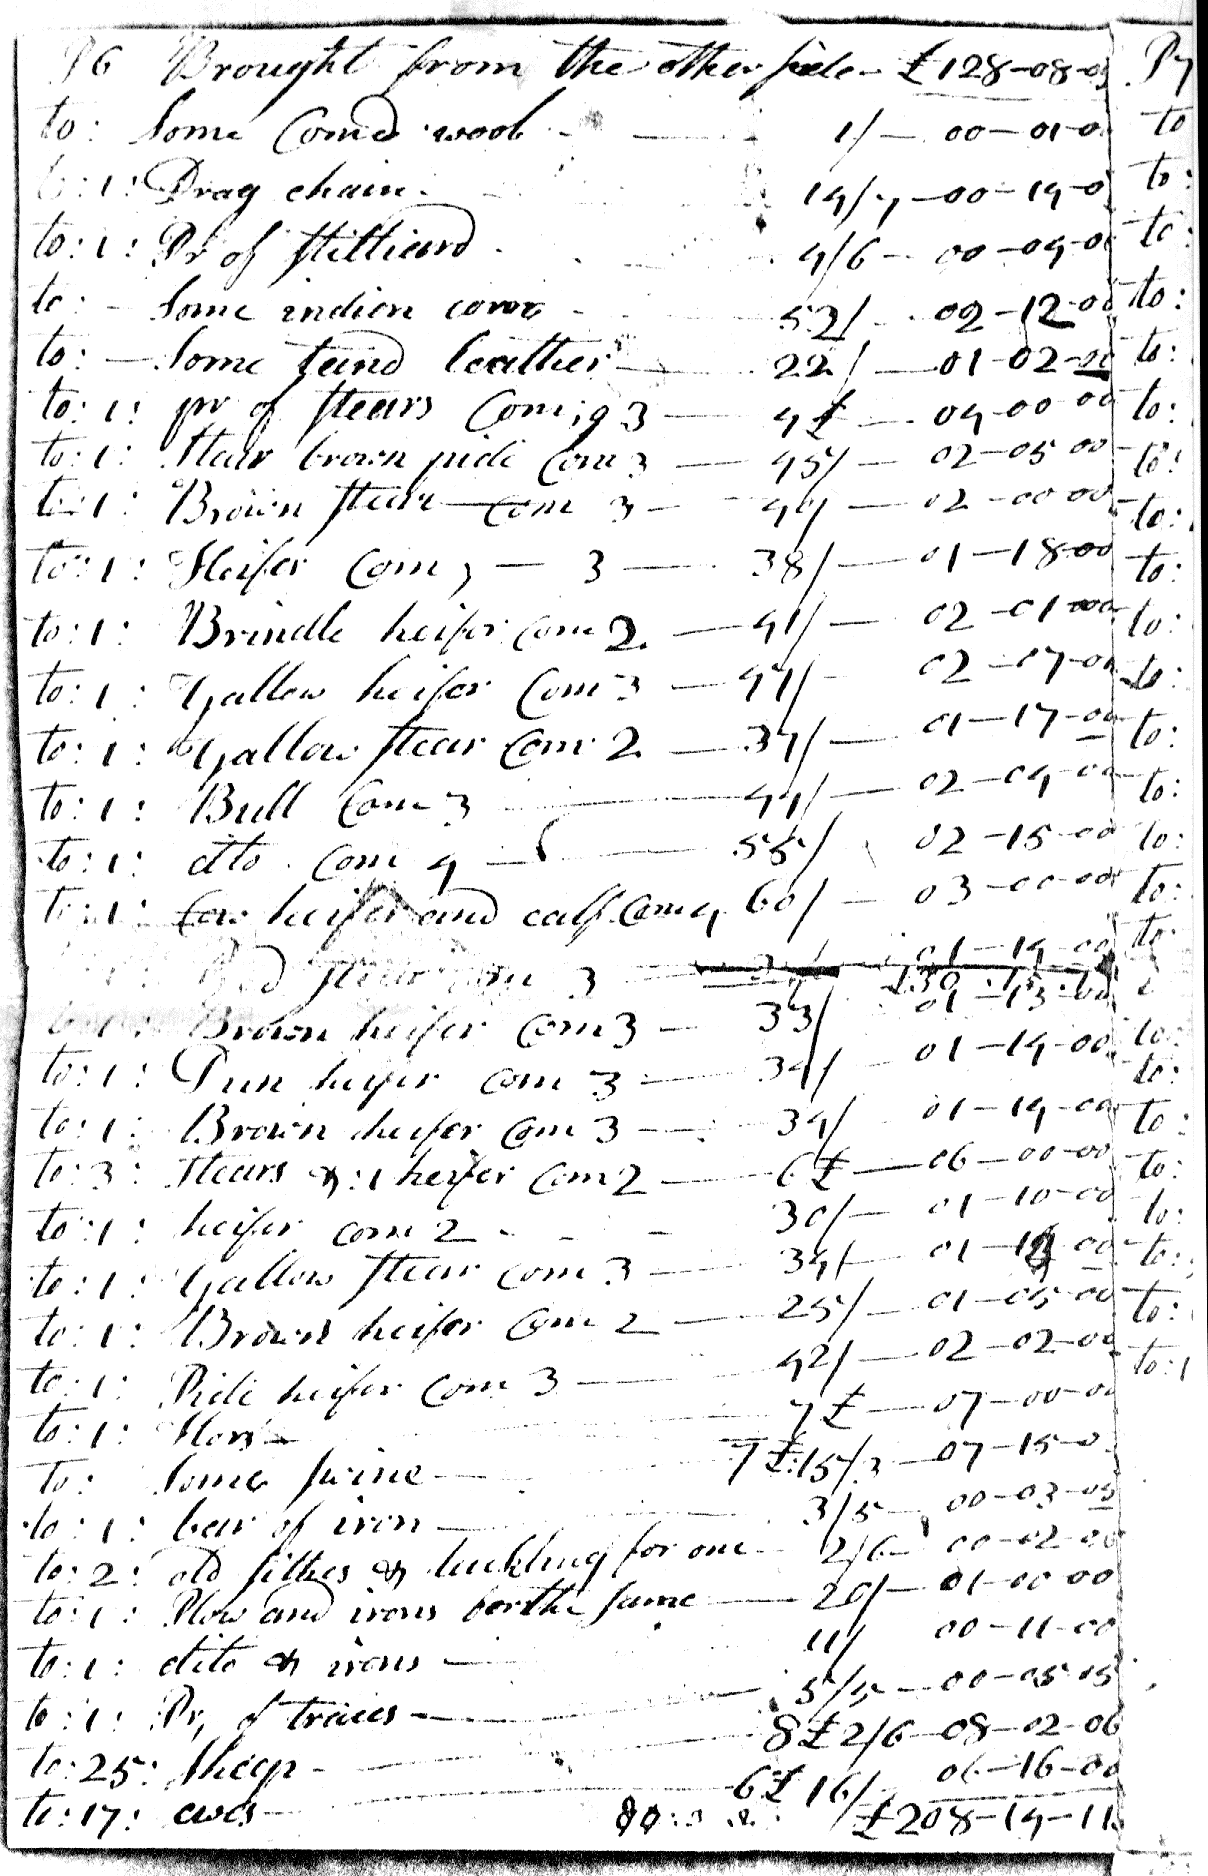 P6 Brought from the other side - £128-08-0 P7
to: Some Comd wool - 1/ - 00-01-0 to
to:1: Drag chain - 14/7 - 00-14-0 to:
to:1: Pr of stilliard 4/6 - 00-04-0 to:
to: - Some indien corn 52/ - 02-12-00 to:
to: - Some tand leather - 22/ - 01-02-00 to:
to:1: pr of stears Coming 3 - 4£ - 04-00-00 to:
to:1: stear brown pide Com 3 - 45/ - 02-05-00 to:
to:1: Brown stear - com 3 - 40/ - 02-00-00 to:
to:1: Heifer Com, - 3 - 38/ - 01-18-00 to:
to:1: Brindle heifer com 2 - 41/ - 02-01-00 to:
to:1: Yallow heifer Com 3 - 47/ - 02-07-00 to:
to:1: Yallow stear Com 2 - 37/ - 01-17-00 to:
to:1: Bull Com 3 - 44/ - 02-04-00 to:
to:1: dito Com 4 - 55/ 02-15-00 to:
to:1: Cow heifer and calf Com 4 60/ - 03-00-00 to:
Red stear com 3 - 01-14-00 to:
to:1: Brown heifer Com 3 - 33/ 01-13-00 to:
to:1: Dun heifer com 3 - 34/ - 01-14-00 to:
to:1: Brown heifer Com 3 - 34/ 01-14-00 to:
to:3: stears &:1 heifer Com 2 - 6£ - 06-00-00 to:
to:1: heifer com 2 - 30/ - 01-10-00 to:
to:1: Yallow stear com 3 - 34/ - 01-14-00 to:
to:1: Brown heifer Com 2 - 25/ - 01-05-00 to:
to:1: Pide heifer Com 3 - 42/ - 02-02-00 to:1
to:1: Hors - 7£ - 07-00-00
to: Some swine - 7£:15/3 - 07-15-0
to:1: bar of iron - 3/5 - 00-03-05
to:2: old sithes & tackling for one - 2/6 - 00-02-06
to:1: Plow and irons for the same - 20/ - 01-00-00
to:1: dito & irons - 11/ 00-11-00
to:1: Pr, of traces - 5/5 - 00-05-05
to:25: sheep - 8£2/6 - 08-02-06
to:17: ewes - 6£16/ - 06-16-00
£208-14-11